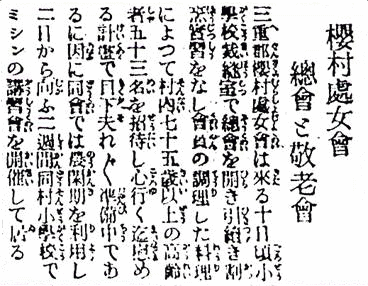 櫻村處女會
總會と敬老會
三重郡櫻村處女會は來る十日頃小
學校裁縫室で總會を開き引續き割
烹實習をなし會員の調理した料理
によつて村内七十五歳以上の高齡
者五十三名を招待し心行く迄慰め
る計畫で目下夫れ〲準備中であ
るに因に同會では農閑期を利用し
二日から向ふ二週間同村小學校で
ミシンの講習會を開催して居る